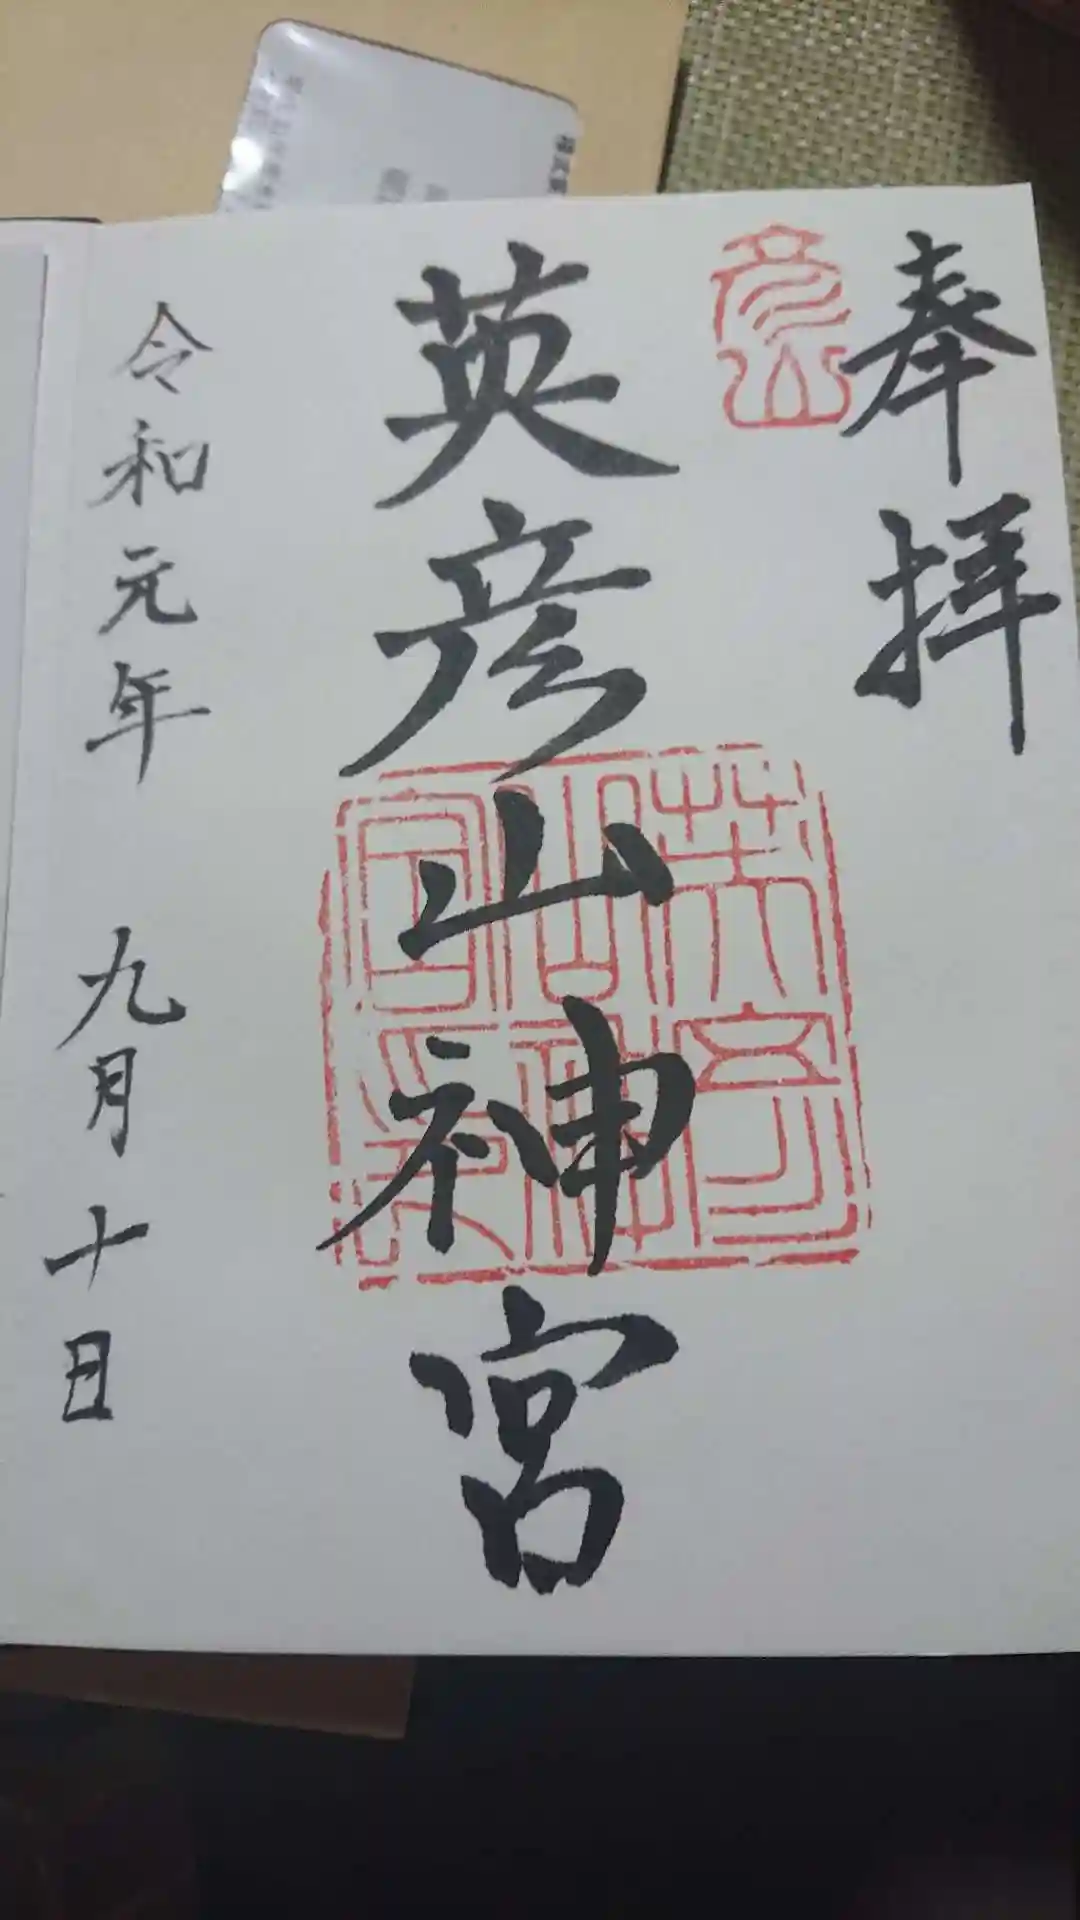 奉拝
彦山
英彦山神宮
英彦山神宮印
令和元年 九月十日